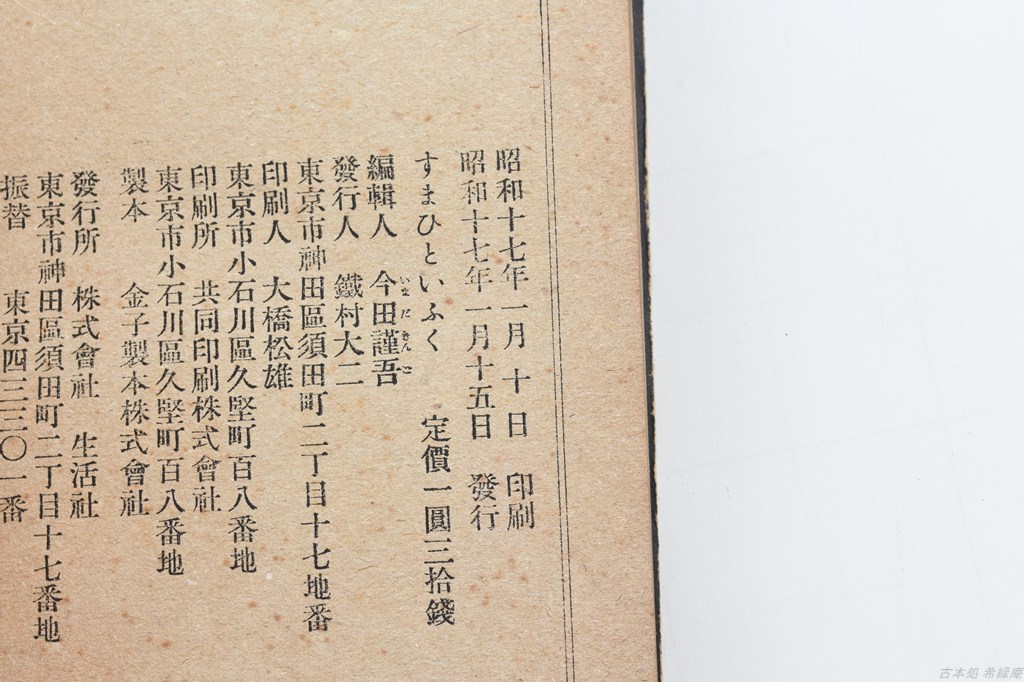 昭和十七年一月十日　印刷
昭和十七年一月十五日　發行
すまひといふく　定價一圓三拾錢
編輯人　今田謹吾
いまだきんご
發行人　鐵村大二
東京市神田區須田町二丁目十七地番
印刷人　大橋松雄
東京市小石川區久堅町百八番地
印刷所　共同印刷株式會社
東京市小石川區久堅町百八番地
製本　金子製本株式會社
發行所　株式會社　生活社
東京市神田區須田町二丁目十七番地
振替　東京四三三〇一番
古本処 希縁庵